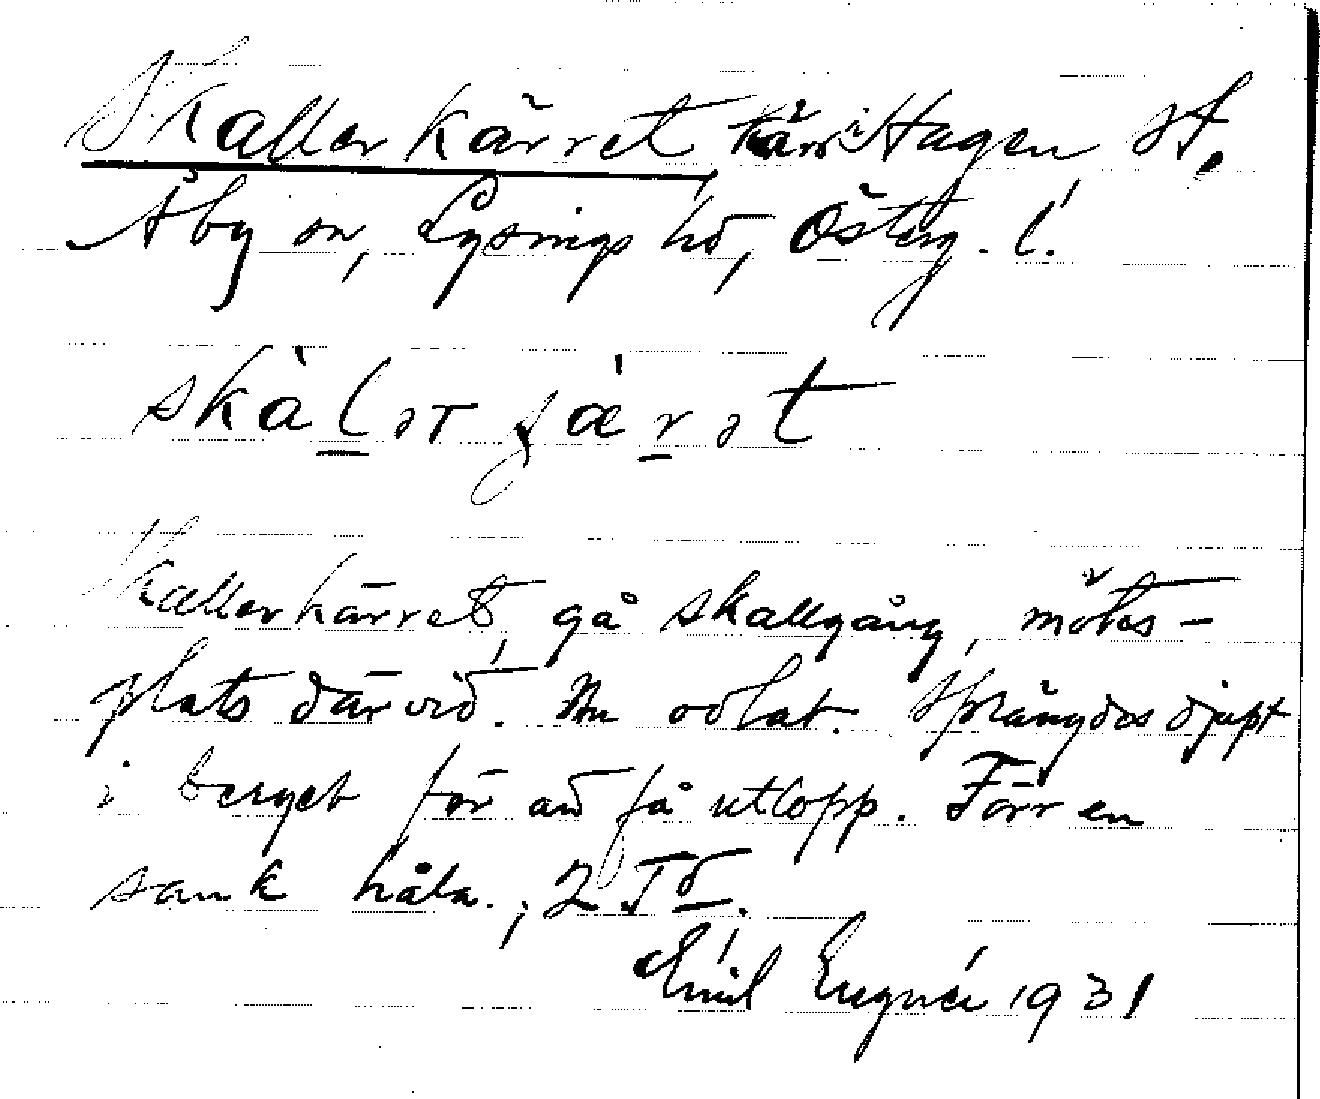 Skallerkärret, kärr i Hagen St.
Åby sn, Lysings hd, Österg. l.
skàlər jæ̀rət
Skallerkärret, gå skallgång, mötes-
plats därvid. Nu odlat. Sprängdes djupt
i berget för att få utlopp. Förr en
sank håla.;
Emil 1931